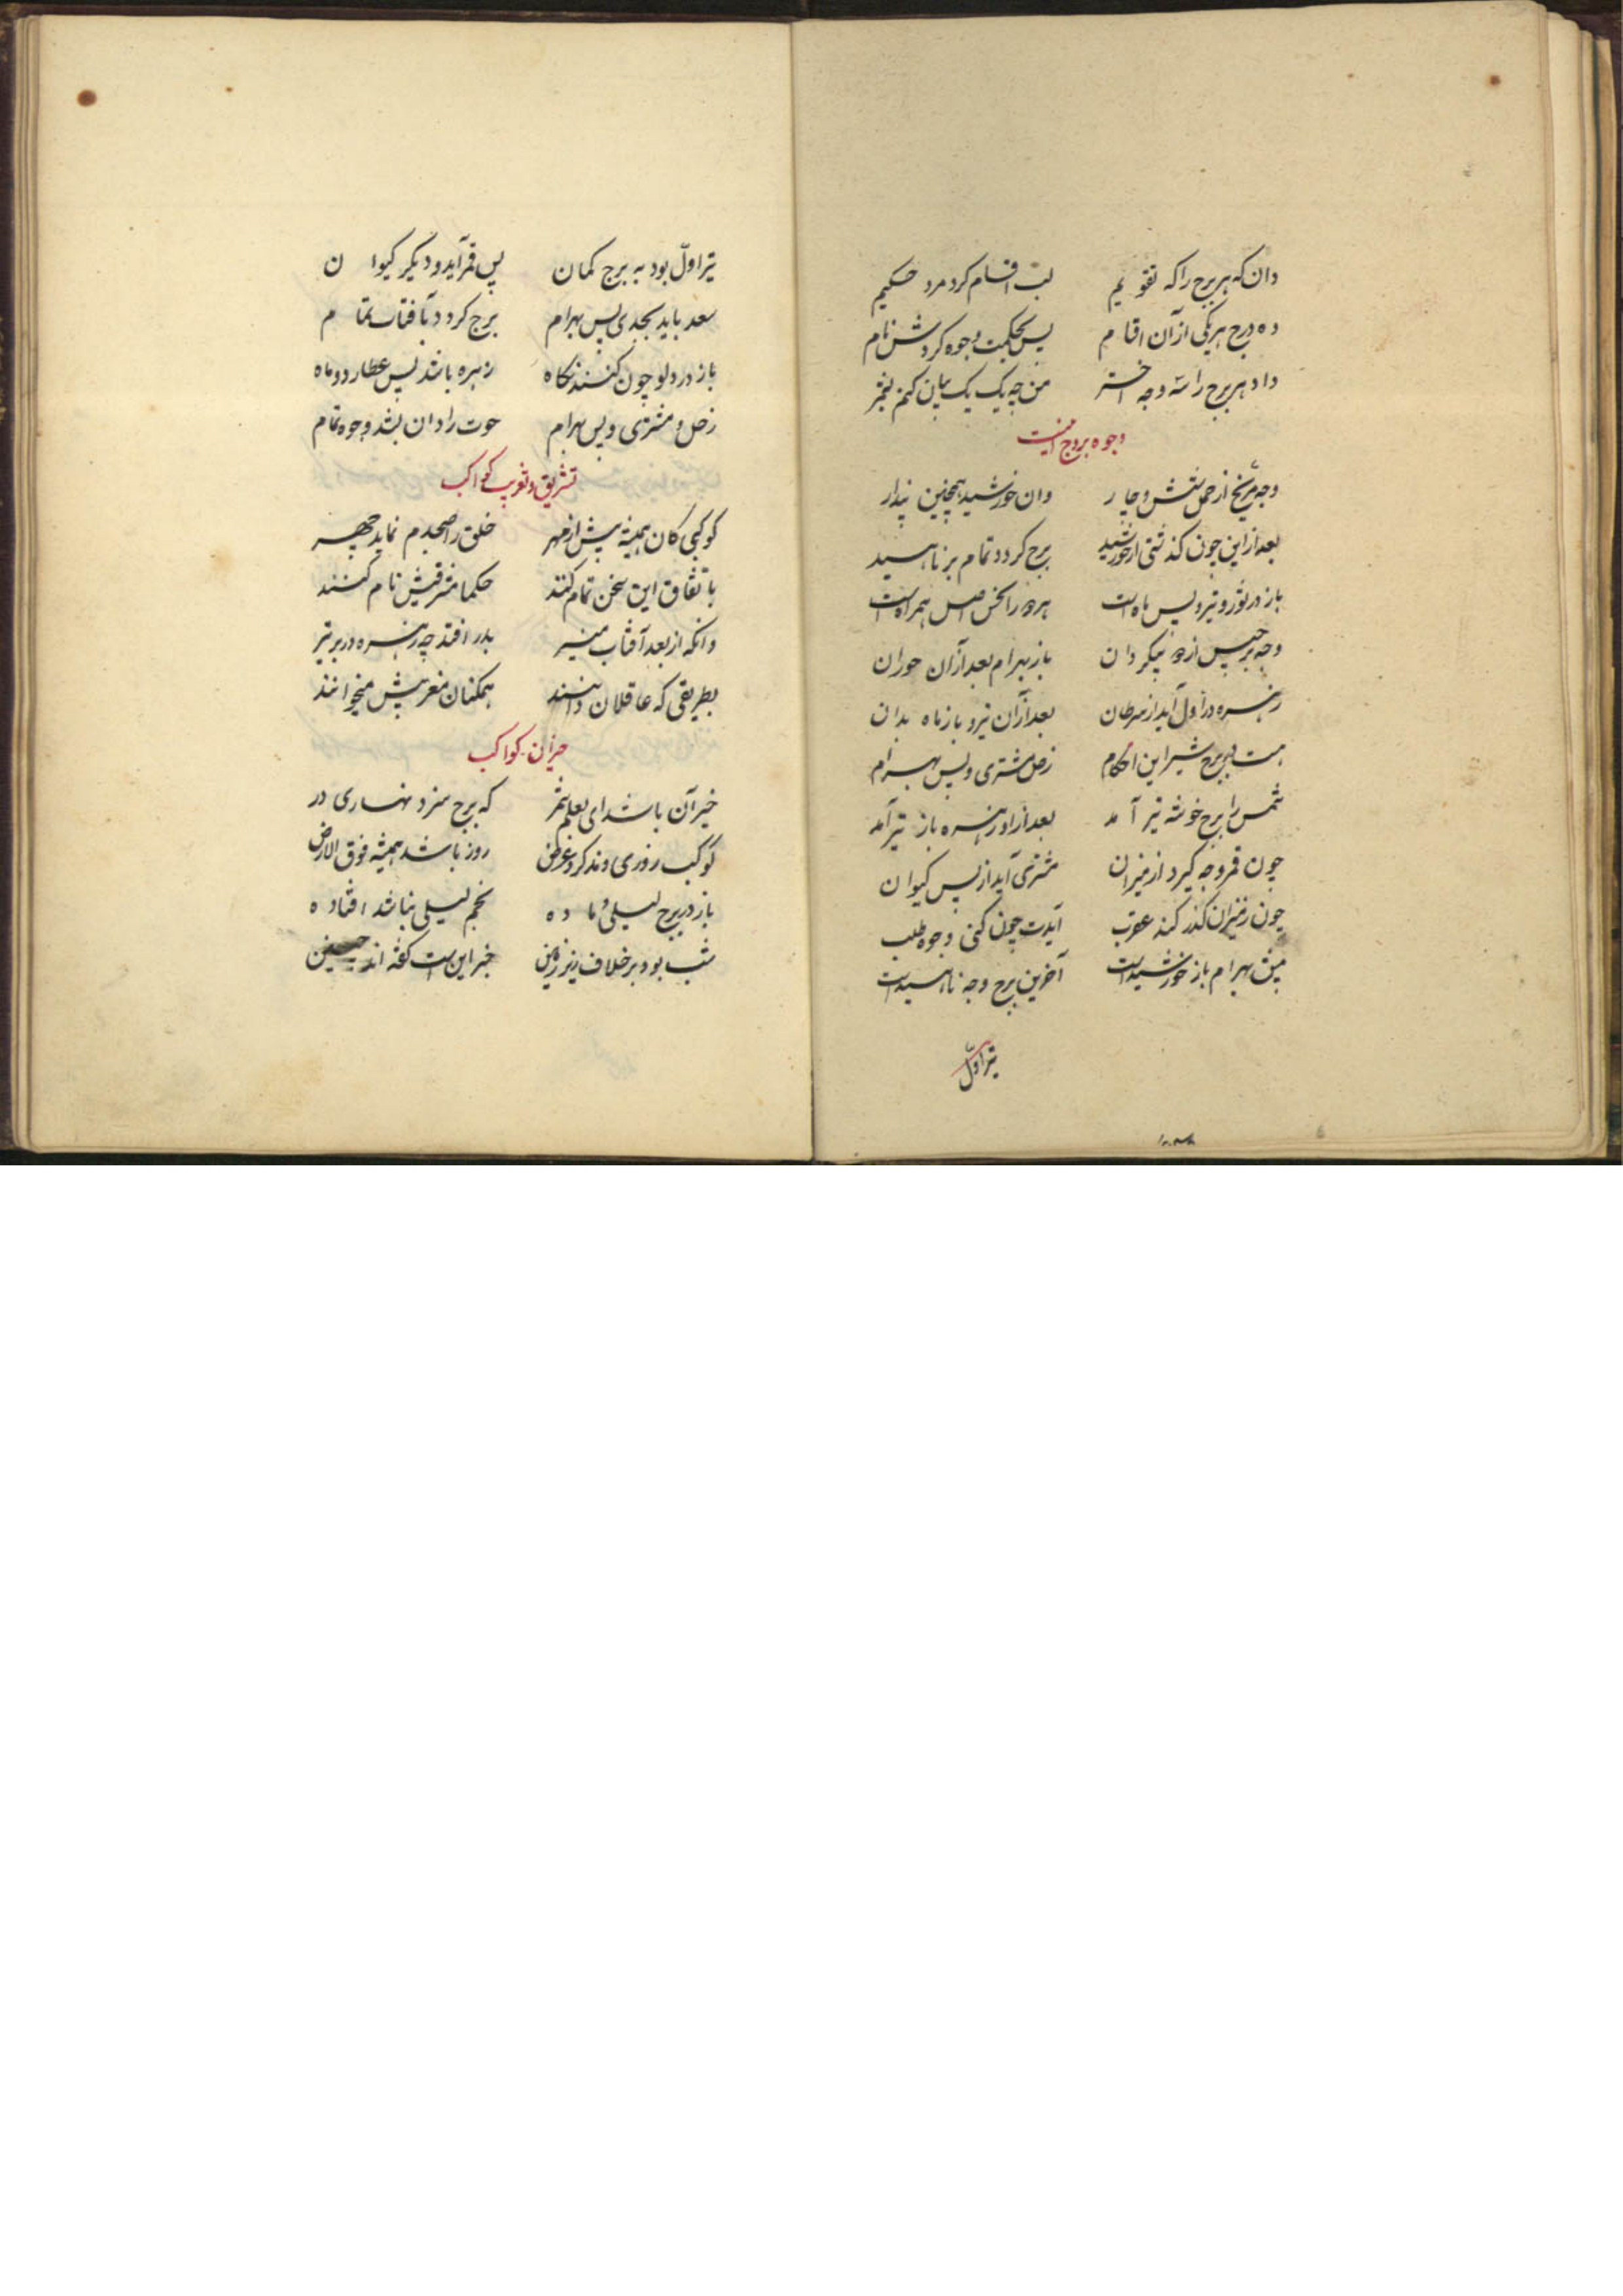 دان که هر برج را که تقویم بسه اقسام کرد مرد حکیم
ده درج هر یکی از آن اقسام پس بحکمت وجوه کردش نام
داد هر برج را سه وجه اختر من چه یک یک بیان کنم بنگر
وجوه بروج اینست
وجه مریخ از حمل شش و چار وان خورشید همچنین پندار
بعد از این چون گذشتی از خورشید برج گردد تمام بر ناهید
باز در ثور و تیر و پس ماه است همراه است
وجه برجیس از دو پیکر دان باز بهرام بعد از آن خور دان
زهره در اول آید از سرطان بعد از آن تیر و باز ماه بدان
هست در برج شیر این احکام زحل و مشتری و پس بهرام
شمس را برج خوشه تیر آمد بعد از او زهره باز تیر آمد
چون قمر وجه گیرد از میزان مشتری آید از پس کیوان
چون ز میزان گذر کند عقرب آیدت چون کنی وجوه طلب
پیش بهرام باز خورشید است آخرین برج وجه ناهید است
تیر اول
تیر اول بود به برج کمان پس قمر آید و دیگر کیوان
سعد باید بجدی پس بهرام برج گردد بآفتاب تمام
باز در دلو چون کنند نگاه زهره باشد پس عطارد و ماه
زحل و مشتری و پس بهرام حوت را دان بشد وجوه تمام
تشریق و تغریب کواکب
کوکبی کان همیشه پیش از مهر خلق را صبحدم نماید چهر
باتفاق این سخن تمام کنند حکما مشرقیش نام کنند
وانکه از بعد آفتاب منیر بدر افتد چه زهره در بر تیر
بطریقی که عاقلان دانند همکنان مغربیش میخوانند
حیزان کواکب
حیز آن باشد ای بعلم سمر که ببرج نر و نهاری در
کوکب روزی و مذکر و غرض روز باشد همیشه فوق الارض
باز در برج لیلی و ماده نجم لیلی بباشد افتاده
شب بود بر خلاف زیر زمین حیز این است گفته‌اند چنین